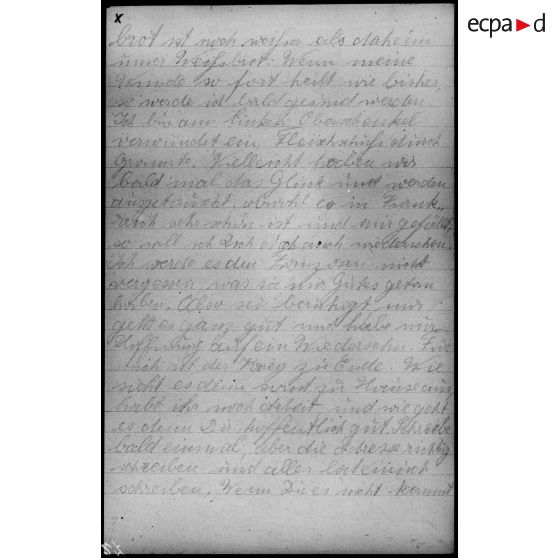 x
ecpad
brot ist noch weißer als daheim
unser Weißbrot. Wenn meine
Wunde so fort heilt wie bisher,
so werde ich bald gesund werden
Ich bin am linken Oberschenkel
verwundet ein Fleischschuß durch
Granate. Vielleicht haben wir
bald mal das Glück und werden
ausgetauscht, obwohl es in Frank-
reich sehr schön ist und mir gefällt,
so will ich Dich doch auch wiedersehen.
Ich werde es den Franzosen nicht
vergessen was sie mir Gutes getan
haben. Also sei beruhigt mir
geht es ganz gut und habe nur
Hoffnung auf ein Wiedersehn. Für
mich ist der Krieg zu Ende. Wie
sieht es denn sonst zu Hause aus
habt ihr noch Arbeit und wie geht
es denn Dir hoffentlich gut. Schreibe
bald einmal, aber die Adresse richtig
schreiben und alles lateinisch
schreiben. Wenn Du es nicht kannst